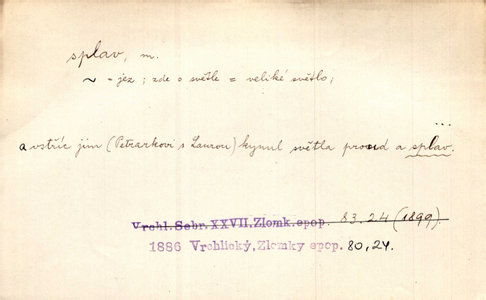 splav, m.
~ = jez ; zde o světle = veliké světlo ;
...
a vstříc jim (Petrarkovi s Laurou) kynul světla proud a splav.
Vrchl. Sebr. XXVII. Zlomk. epop. 83.24 (1899).
1886 Vrchlický, Zlomky epop. 80,24.